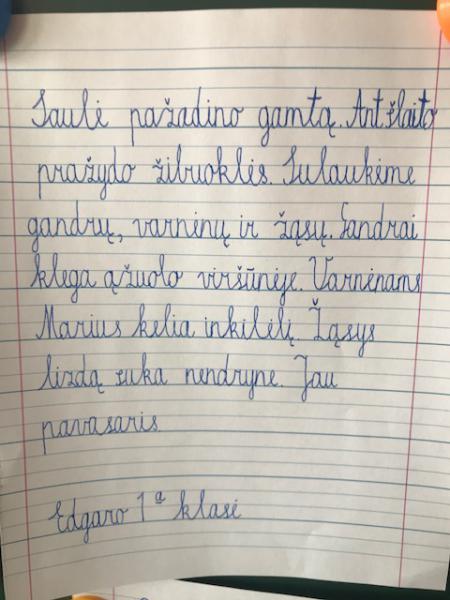 Saulė pažadino gamtą. Ant šlaito
pražydo žibuoklės. Sulaukėme
gandrų, varnėnų ir žąsų. Gandrai
klega ąžuolo viršūnėje. Varnėnams
Marius kelia inkilėlį. Žąsys
lizdą suka nendrynе. Jau
pavasaris.
Edgaro 1ª klasė